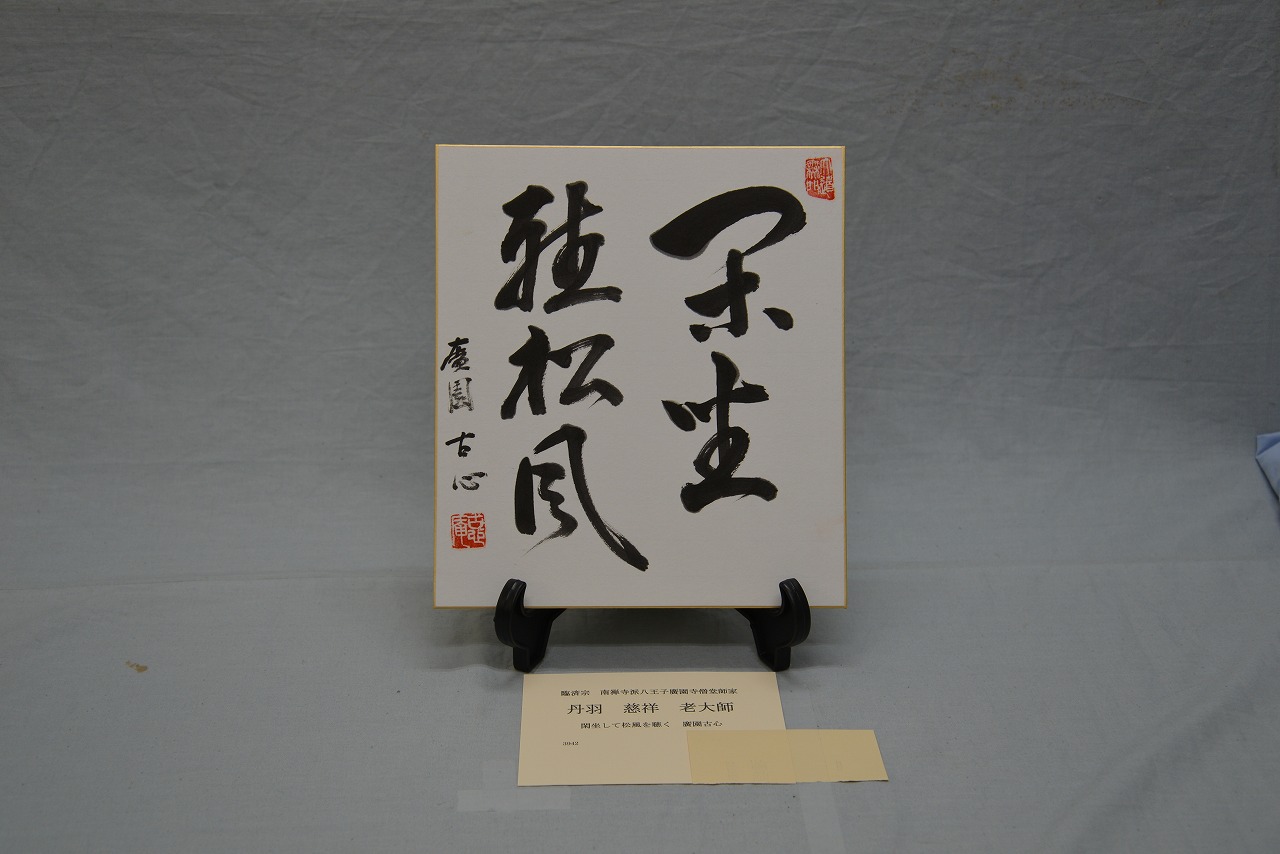 閑坐
聴松風
廣園 古心
臨済宗　南禅寺派八王子廣園寺僧堂師家
丹羽　慈祥　老大師
閑坐して松風を聴く　廣園古心
3942